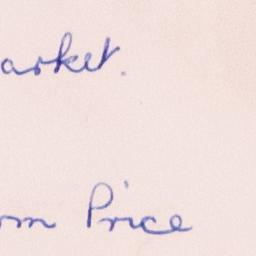 arket.
om Price